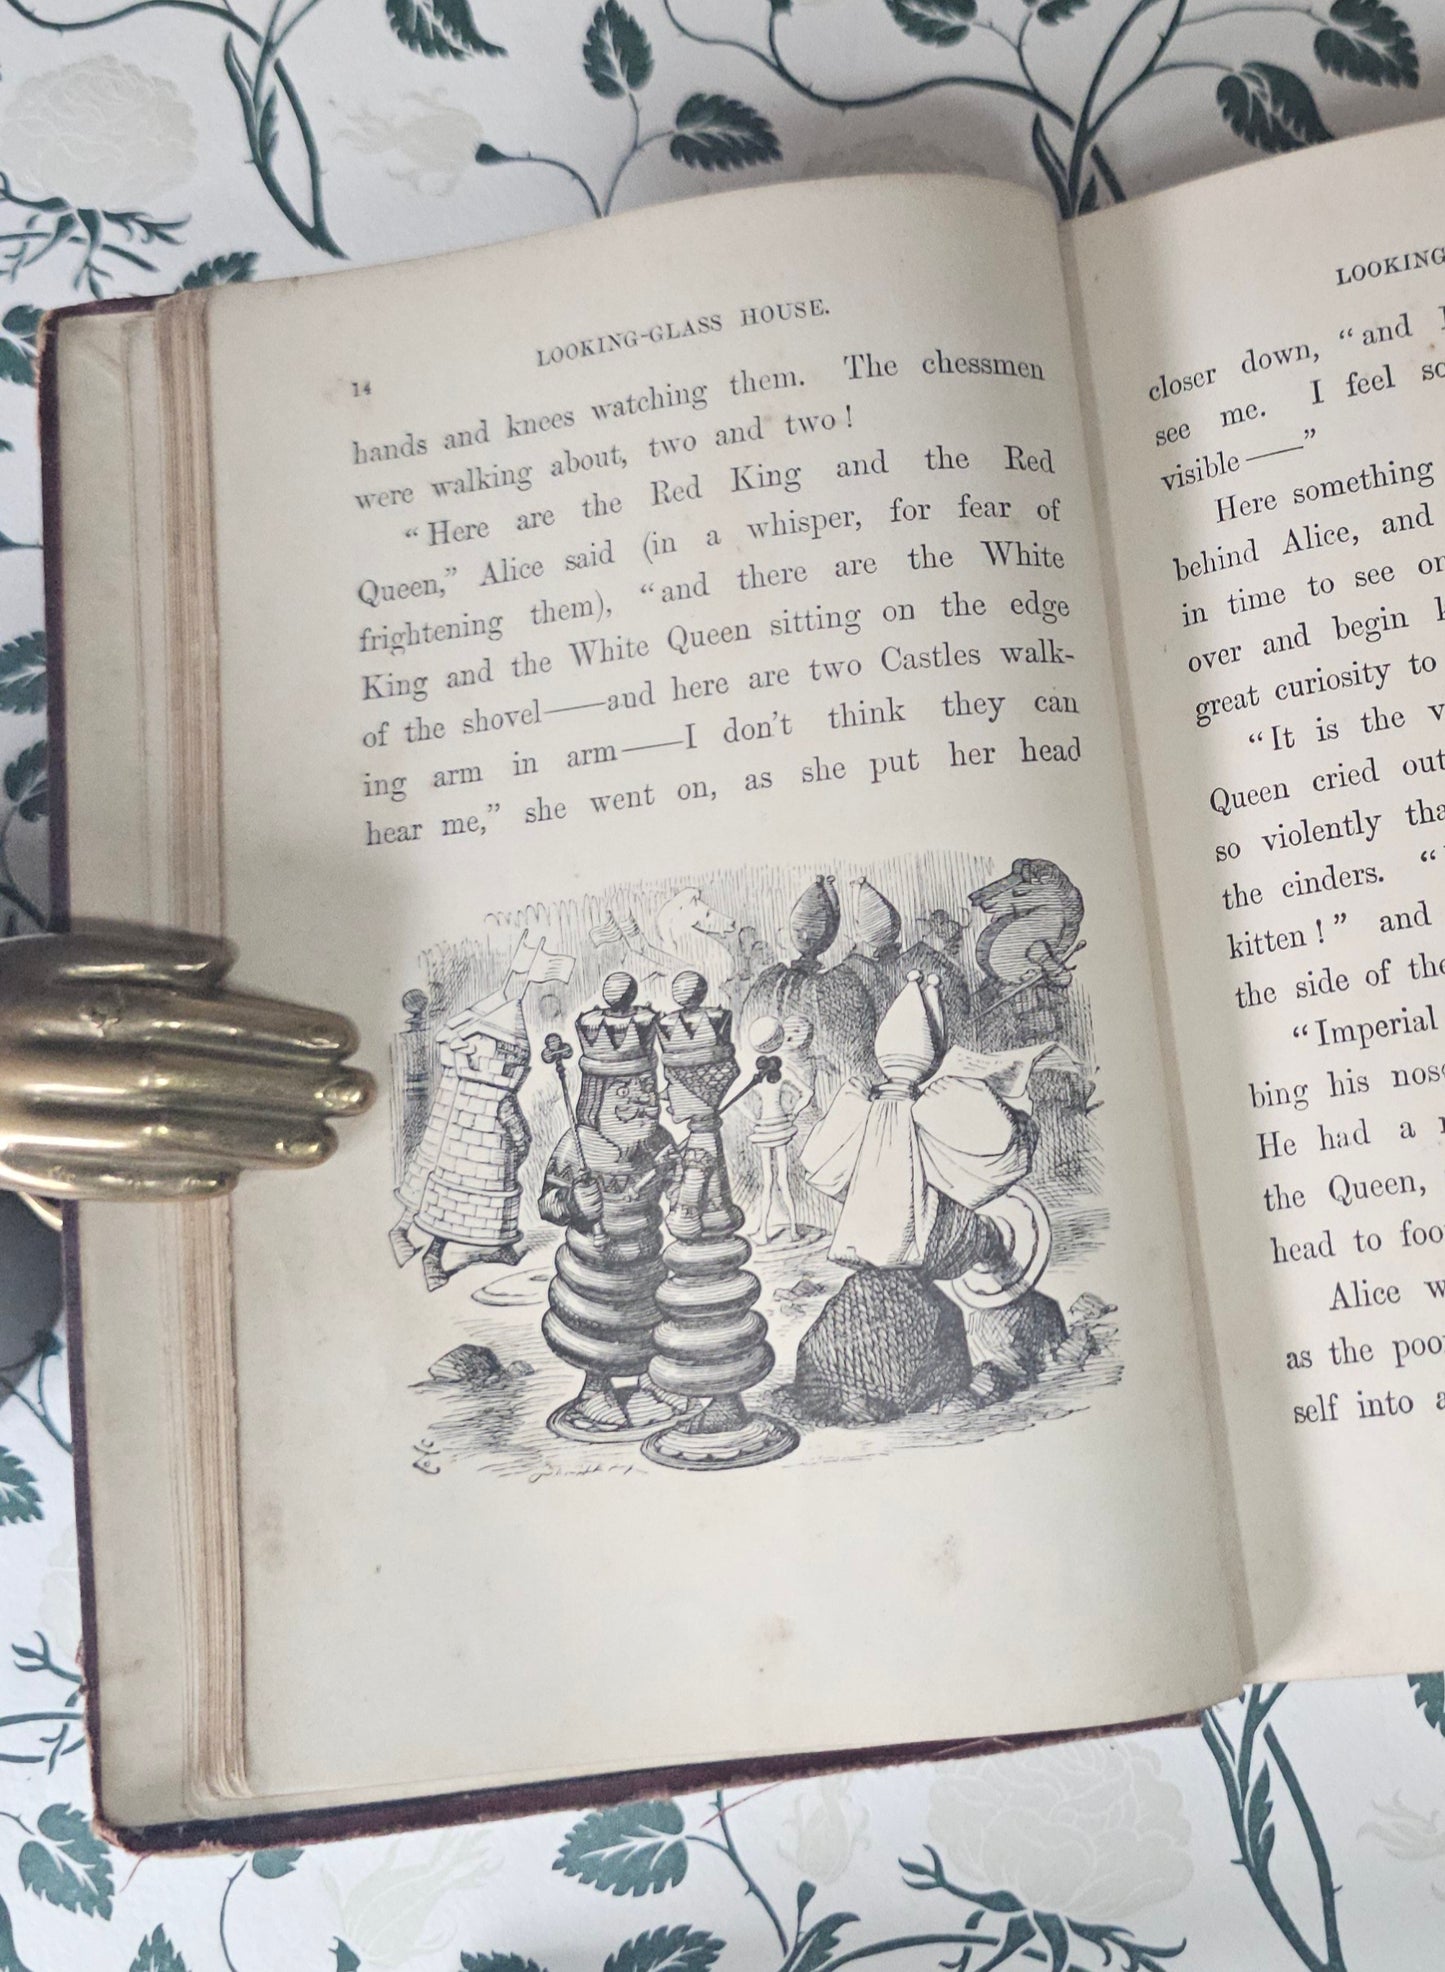 LOOKING-GLASS HOUSE.
14
hands and knees watching them. The chessmen
were walking about, two and two!
“Here are the Red King and the Red
Queen,” Alice said (in a whisper, for fear of
frightening them), “and there are the White
King and the White Queen sitting on the edge
of the shovel——and here are two Castles walk-
ing arm in arm——I don’t think they can
hear me,” she went on, as she put her head
LOOKING
closer down, “and
see me. I feel
visible——”
Here something
behind Alice, and
in time to see
over and begin
great curiosity to
“It is the
Queen cried out
so violently
the cinders.
kitten!” and
the side of the
“Imperial
bing his
He had a
the Queen,
head to
Alice
as the
self into